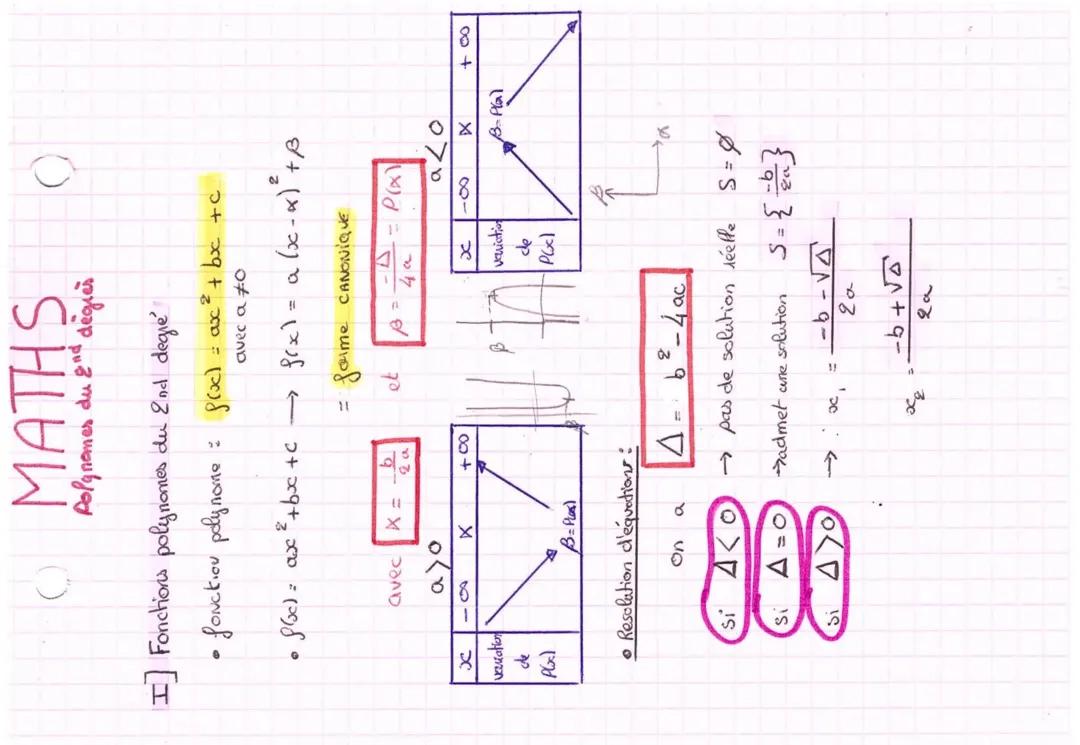 MATHS
Polynomes du 2nd degrès
I] Fonctions polynomes du 2nd degré
• fonction polynome : f(x) = ax² + bx + c
avec a ≠ 0
• f(x) = ax² + bx + c → f(x) = a (x - α)² + β
= forme CANONIQUE
avec α = -b/2a et β = -Δ/4a = P(α)
a > 0
x -∞ α +∞
variation de P(x)
β = P(α)
β
β
a < 0
x -∞ α +∞
variation de P(x)
β = P(α)
β
α
• Resolution d'équations :
on a Δ = b² - 4ac
si Δ < 0 → pas de solution réelle S = ∅
si Δ = 0 → admet une solution S = {-b/2a}
si Δ > 0 → : x₁ = -b - √Δ / 2a
x₂ = -b + √Δ / 2a